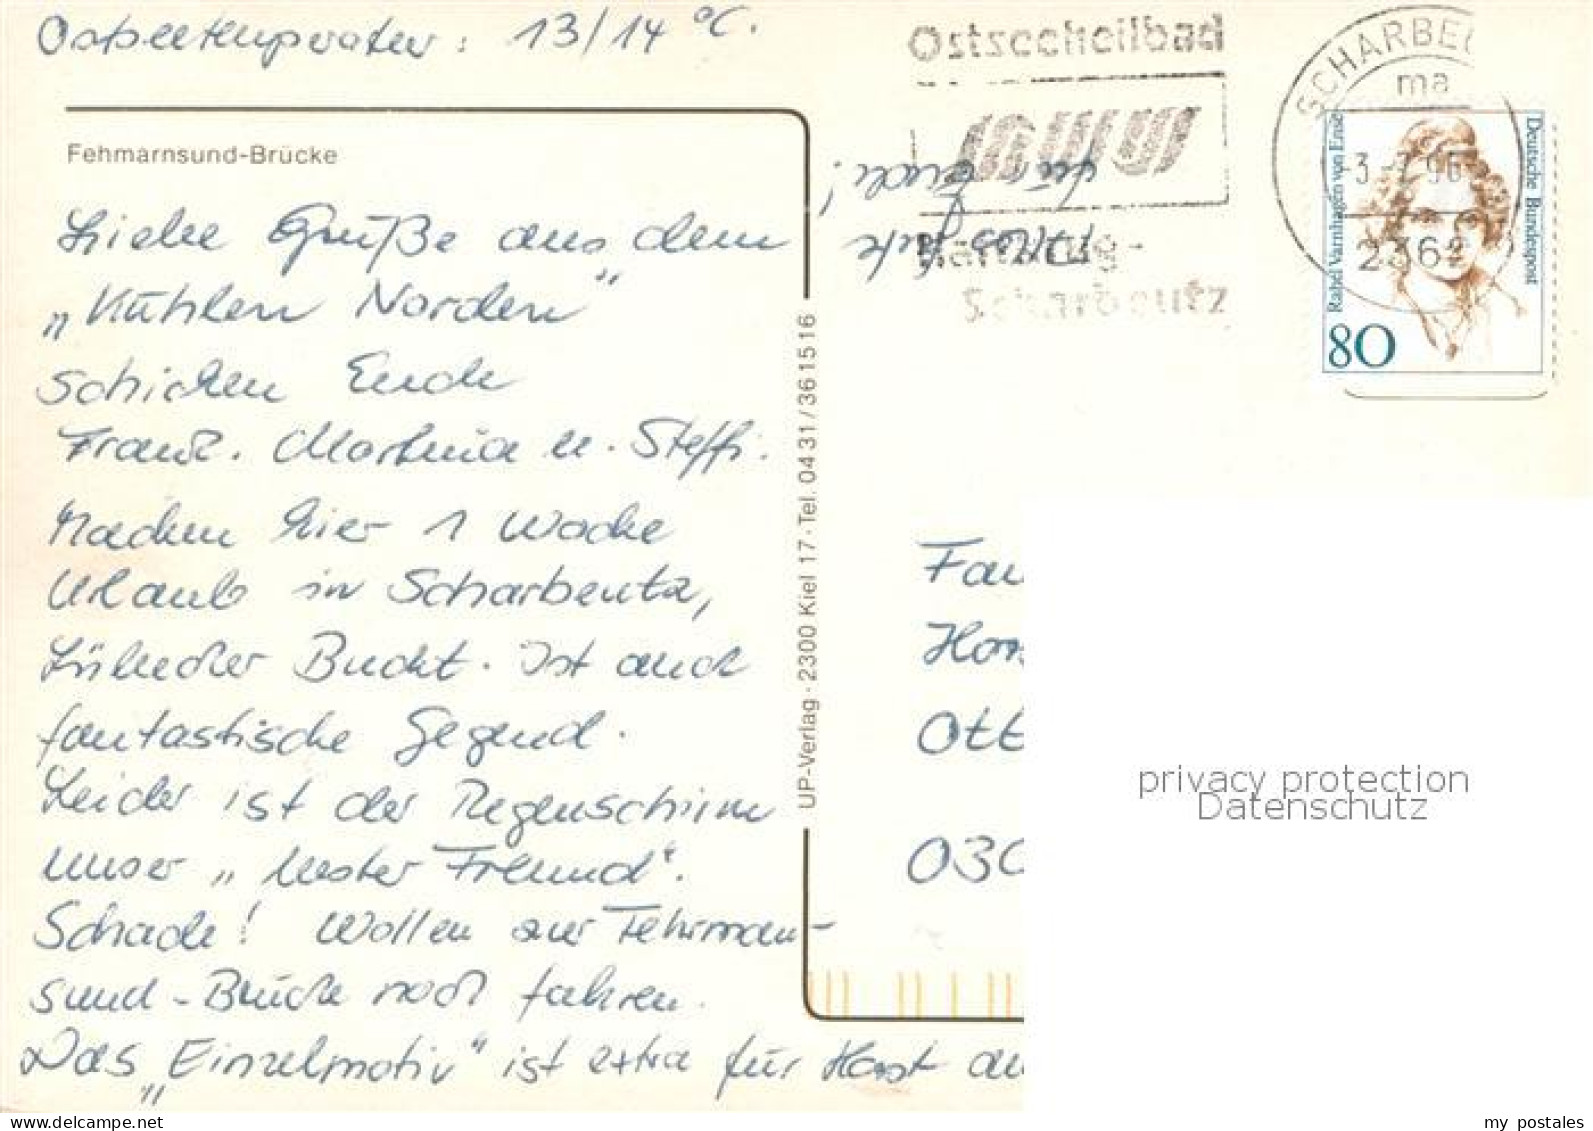 Ostseetemperatur: 13/14 °C.
Fehmarnsund-Brücke
Liebe Grüße aus dem
„Kühlen Norden"
schicken Euch
Franz. Martina u. Steffi.
Machen hier 1 Woche
Urlaub in Scharbeutz,
Lübecker Bucht. Ist auch
fantastische Gegend.
Leider ist der Regenschirm
unser „bester Freund".
Schade! Wollen zur Fehrman-
sund-Brücke noch fahren.
Das „Einzelmotiv" ist extra für Horst au
UP-Verlag · 2300 Kiel 17 · Tel. 0431/361516
Ostseeheilbad
Haffkrug-
Scharbeutz
Alles Gute
für Euch!
SCHARBEU
ma
-3.-7.96
2362
Deutsche Bundespost
Rahel Varnhagen von Ense
80
Fam
Hors
Ott
030
privacy protection
Datenschutz
my postales